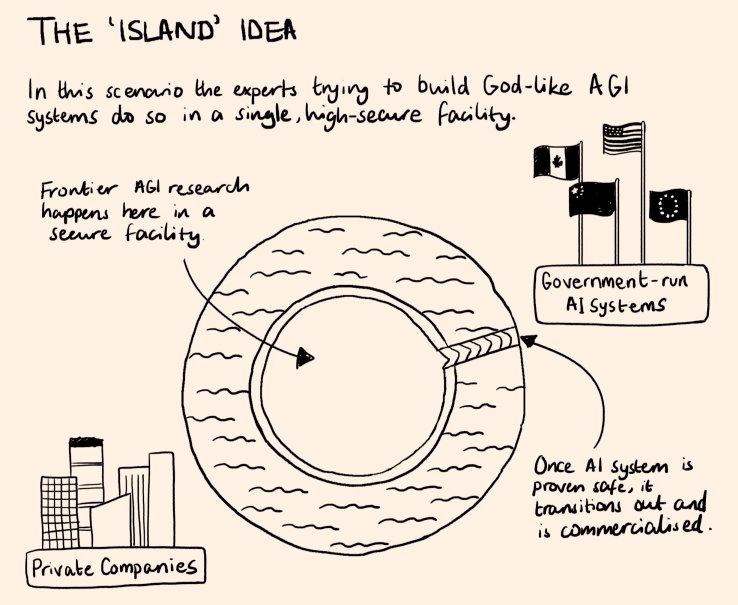 THE 'ISLAND' IDEA
In this scenario the experts trying to build God-like AGI
systems do so in a single, high-secure facility.
Frontier AGI research
happens here in a
secure facility.
Government-run
AI Systems
Once AI system is
proven safe, it
transitions out and
is commercialised.
Private Companies